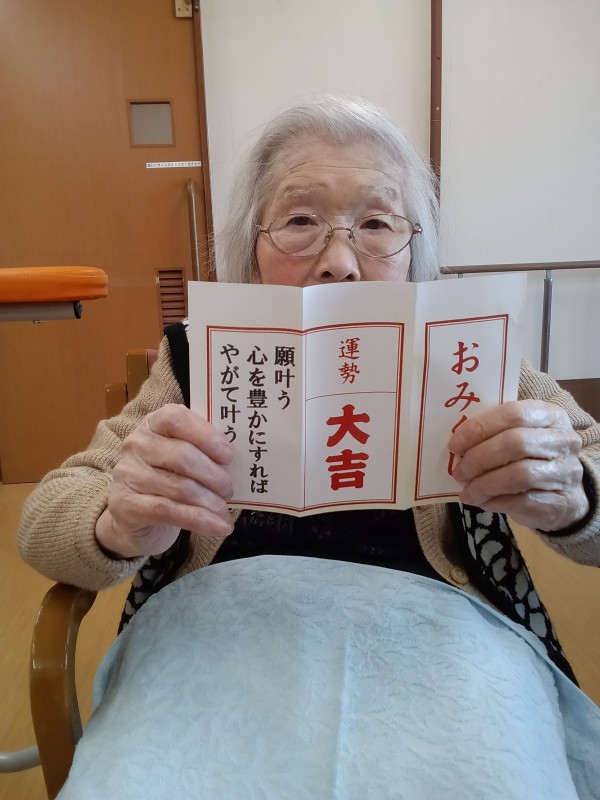 おみく
運勢
大吉
願叶う
心を豊かにすれば
やがて叶う